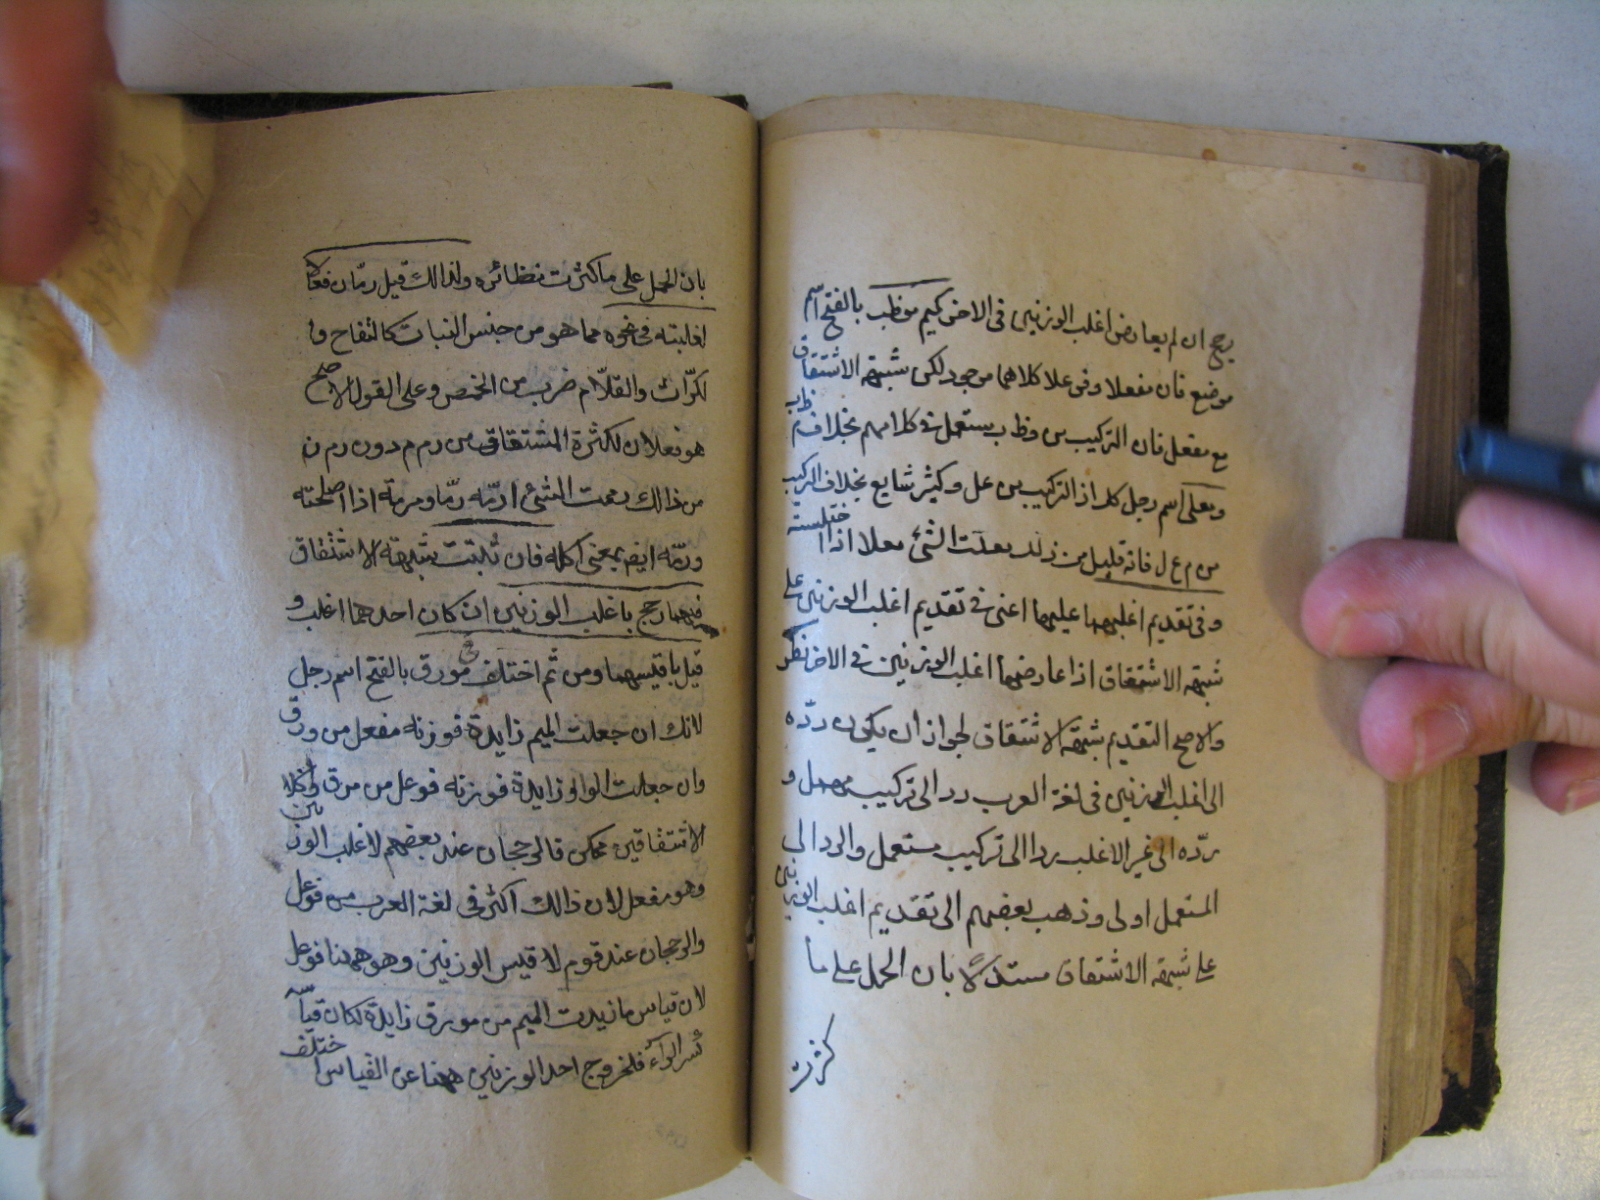 يرجح ان لم يعارض اغلب الوزنين في الاخر كيم موظب بالفتح اسم
موضع فان مفعلا وفوعلا كلاهما موجود لكن شبهة الاشتقاق
مع مفعل فان التركيب من وظب مستعمل في كلامهم بخلاف م ظ ب
ومعلى اسم رجل كك اذ التركيب من عل و كثير شايع بخلاف التركيب
من م ع ل فانه قليل من زلد معلت الشئ معلا اذا اختلسته
وفي تقديم اغلبهما عليها اعنى في تقديم اغلب الوزنين على
شبهة الاشتقاق اذا عارضها اغلب الوزنين في الاخر نظر
والاصح التقديم شبهة الاشتقاق لجواز ان يكون ردّه
الى اغلب الوزنين في لغة العرب ردا الى تركيب مهمل و
ردّه الى غير الاغلب ردا الى تركيب مستعمل والرد الى
المستعمل اولى وذهب بعضهم الى تقديم اغلب الوزنين
على شبهة الاشتقاق مستدلًا بان الحمل على ما
كثرت
بان الحمل على ما كثرت نظائره ولذالك قيل رمّان فعّال
لغلبته في نحوه مما هو من جنس النبات كالتفاح وا
لكرّاث والقلّام ضرب من الحمص وعلى القول الاصح
هو فعلان لكثرة المشتقاق من رم م دون رم ن
من ذالك رممت الشئ ارمّه رمّا ومرمة اذا اصلحته
ورمّه ايضا بمعنى اكله فان ثبتت شبهة الاشتقاق
فيهما رجح باغلب الوزنين ان كان احدهما اغلب و
قيل باقيسهما ومن ثم اختلف في مورق بالفتح اسم رجل
لانك ان جعلت الميم زايدة فوزنه مفعل من ورق
وان جعلت الواو زايدة فوزنه فوعل من مرق وكلا
الاشتقاقين ممكن فالرجحان عند بعضهم لاغلب الوزنين
وهو مفعل لان ذالك اكثر في لغة العرب من فوعل
والرجحان عند قوم لاقيس الوزنين وهو ههنا فوعل
لان قياس ما زيدت الميم من مورق زايدة لكان قياسه
كسر الراء فلخروج احد الوزنين ههنا عن القياس اختلف